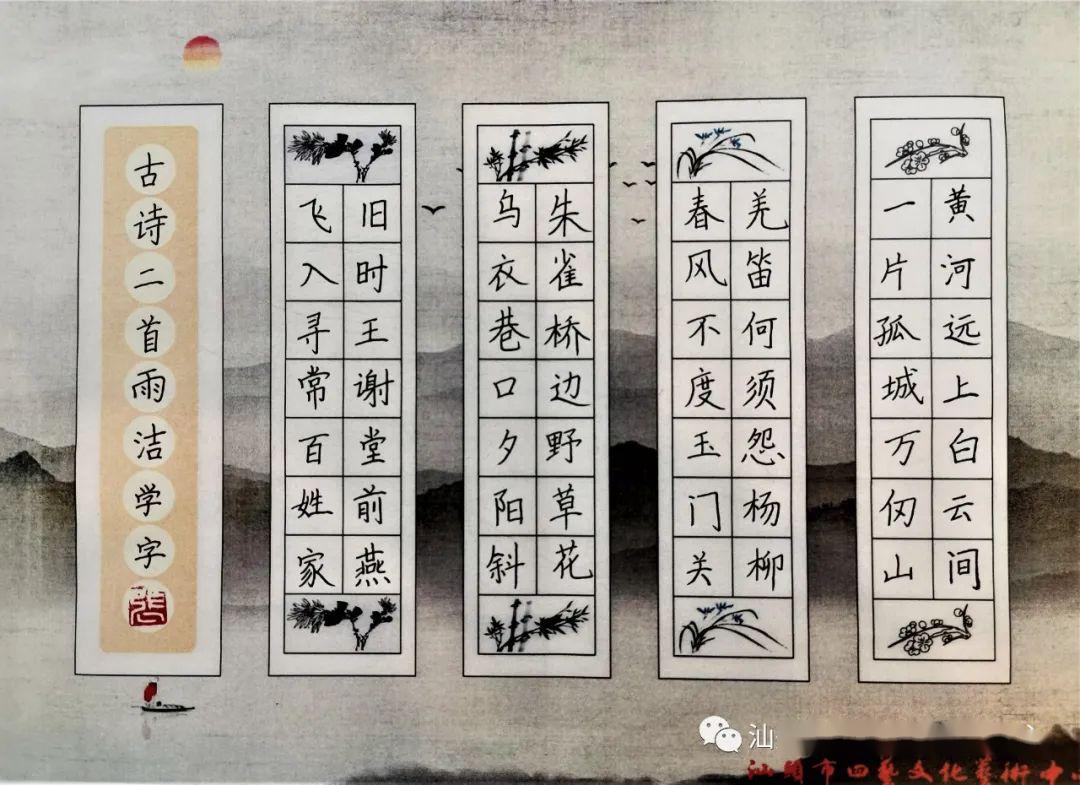 黄河远上白云间
一片孤城万仞山
羌笛何须怨杨柳
春风不度玉门关
朱雀桥边野草花
乌衣巷口夕阳斜
旧时王谢堂前燕
飞入寻常百姓家
古诗二首雨洁学字
汕
汕頭市四藝文化藝術中